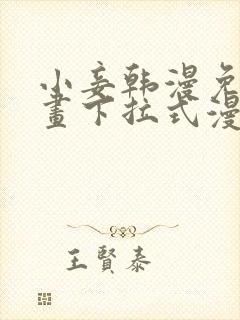 小妾韩漫免
畫下拉式漫
王賢泰